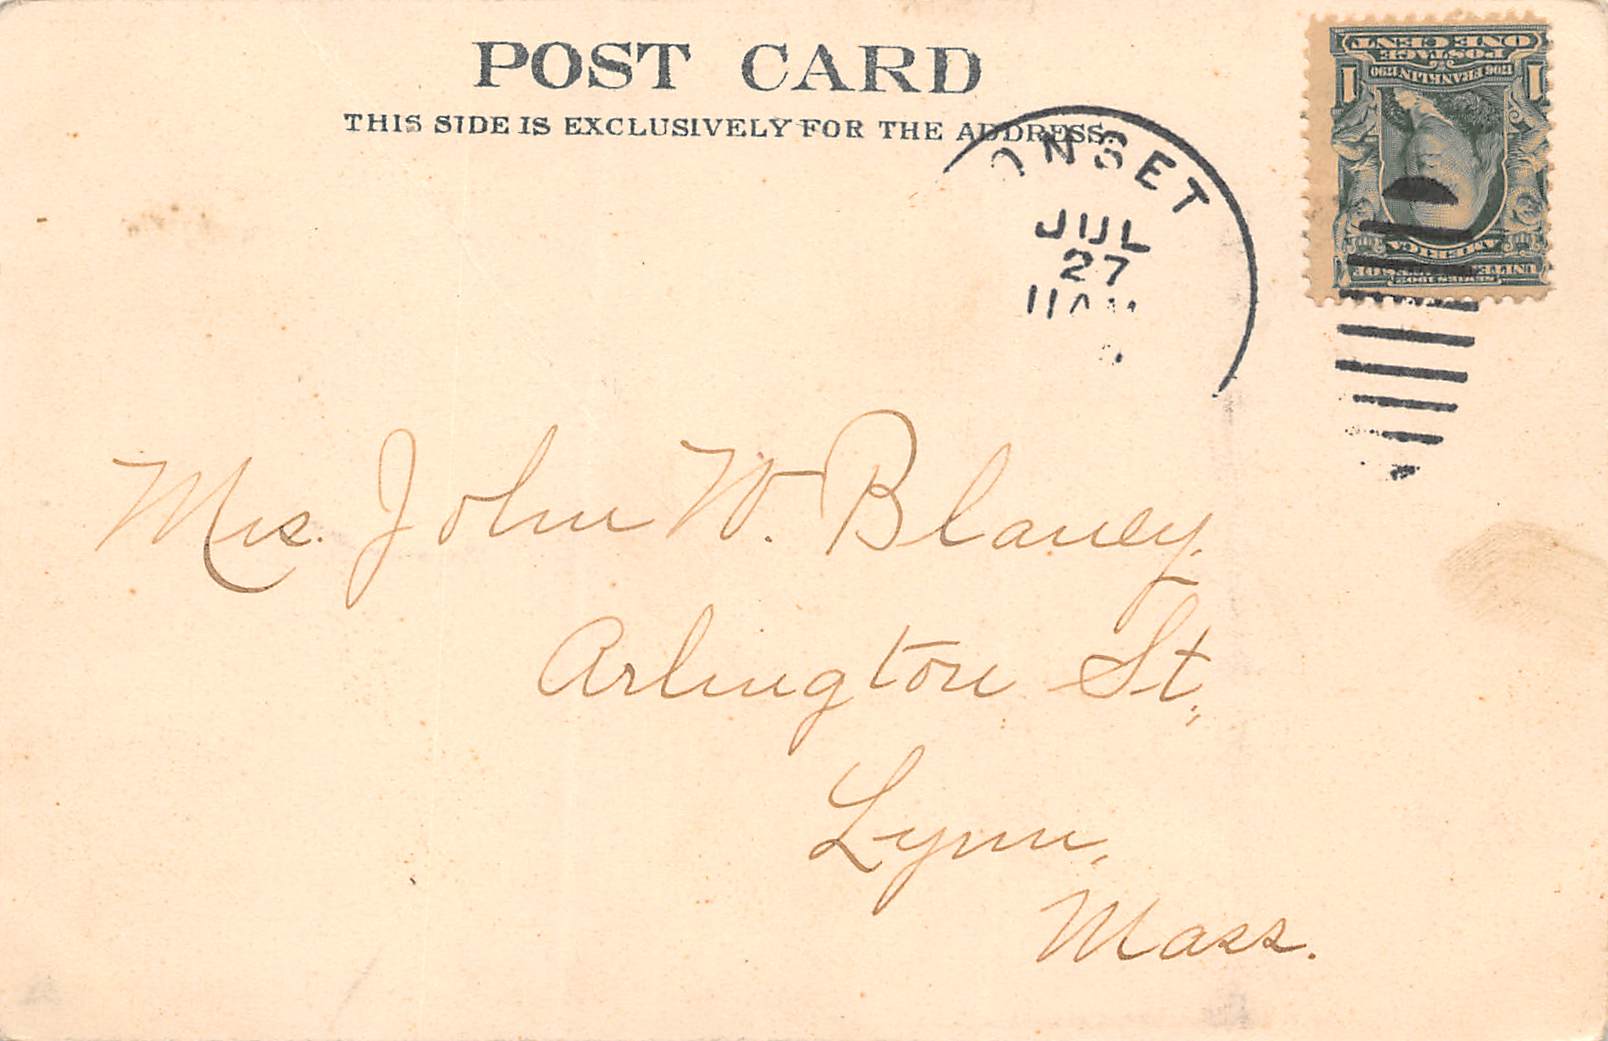 POST CARD
THIS SIDE IS EXCLUSIVELY FOR THE ADDRESS.
ONSET
JUL
27
11 AM
ONE CENT
POSTAGE
1706 FRANKLIN 1790
1 1
AMERICA
Mrs. John W. Blaney.
Arlington St.,
Lynn,
Mass.